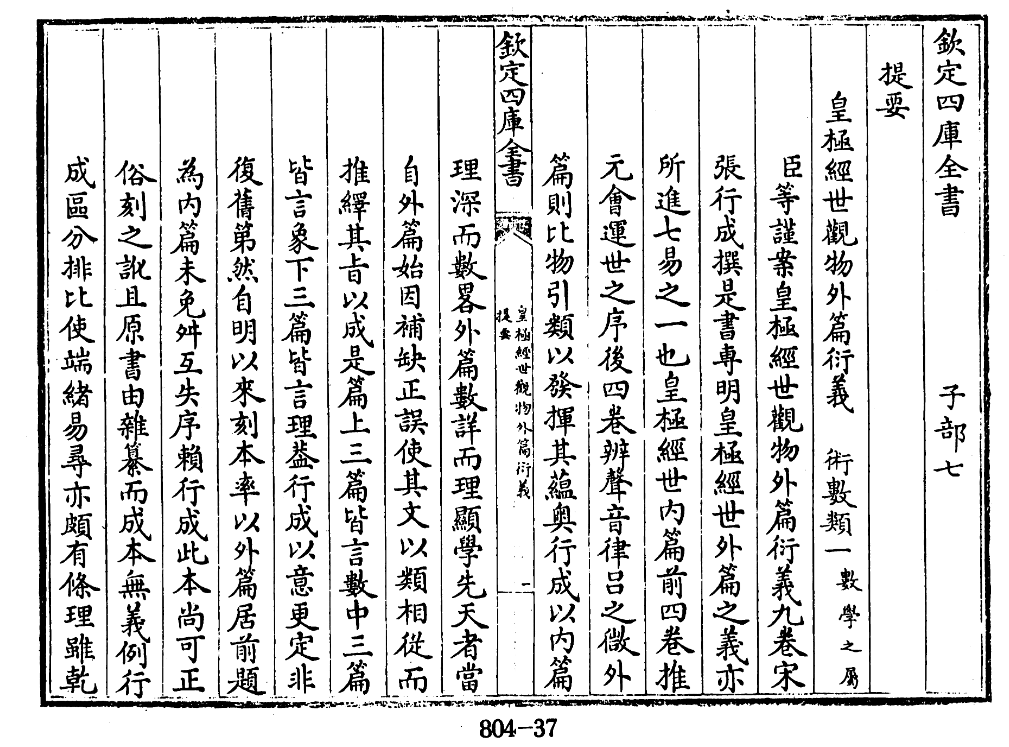 欽定四庫全書　子部七
提要
皇極經世觀物外篇衍義　術數類一數學之屬
臣等謹案皇極經世觀物外篇衍義九卷宋
張行成撰是書專明皇極經世外篇之義亦
所進七易之一也皇極經世內篇前四卷推
元會運世之序後四卷辨聲音律呂之微外
篇則比物引類以發揮其蘊奥行成以內篇
欽定四庫全書
皇極經世觀物外篇衍義
提要
一
理深而數畧外篇數詳而理顯學先天者當
自外篇始因補缺正誤使其文以類相從而
推繹其旨以成是篇上三篇皆言數中三篇
皆言象下三篇皆言理葢行成以意更定非
復舊第然自明以來刻本率以外篇居前題
為內篇未免舛互失序賴行成此本尚可正
俗刻之訛且原書由雜纂而成本無義例行
成區分排比使端緒易尋亦頗有條理雖乾
804-37